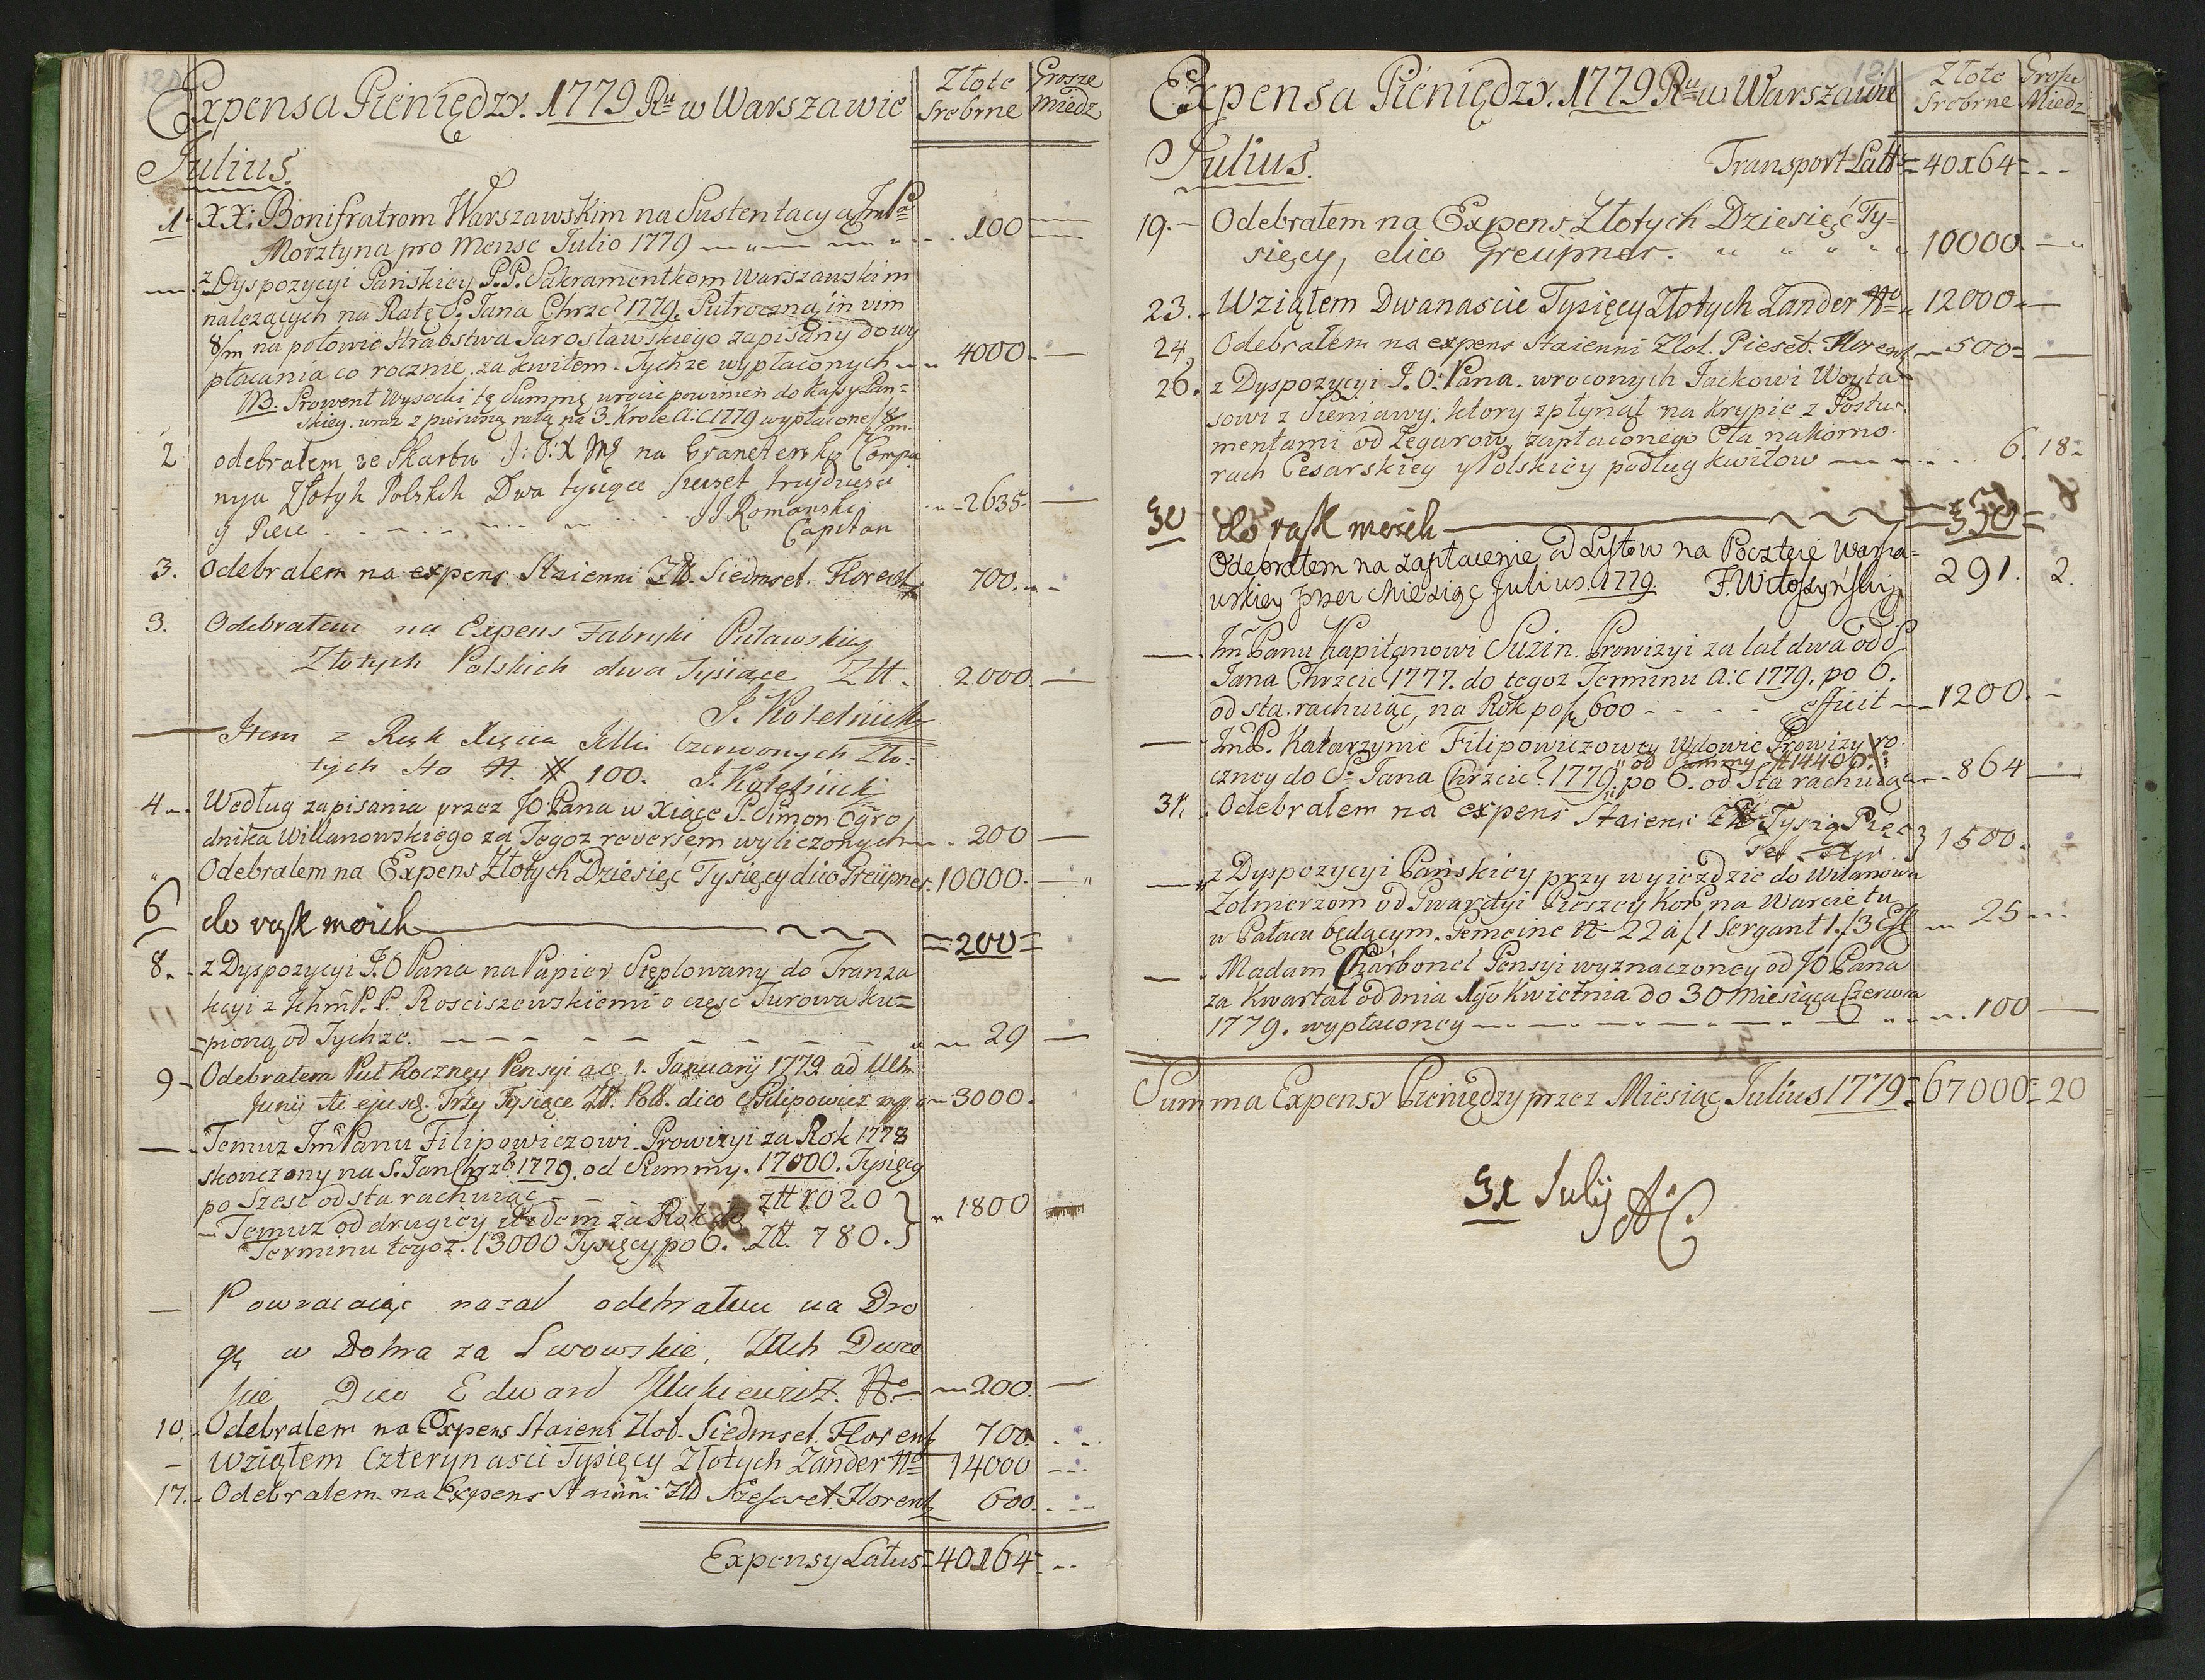 120
Expensa Pieniędzy. 1779 Ru w Warszawie
Złote Srebrne
Grosze Miedz
Julius.
1. XX: Bonifratrom Warszawskim na Sustentacyą JmPa
Morztyna pro Mense Julio 1779 100
z Dyspozycyi Pańskiey P.P. Sakramentkom Warszawskim
należących na Ratę S. Jana Chrzc. 1779. Pułroczną in vim
8/m na połowie Hrabstwa Jarosławskiego zapisany do wy
płacania co rocznie. za kwitem Tychże wypłaconych 4000
NB. Prowent Wysocki tę Summę wrócić powinien do Kassy Pań=
skiey. wraz z pierwszą ratą na 3. Krole A:C 1779 wypłacone 8/m.
2 odebrałem ze Skarbu J: O: X Mś na Compa
nyu Złotych Polskich Dwa tysiące Szescset trzydziesci
y Piec 2635.
JJ Romanski
Capitan
3. Odebralem na expens Staienni Złł. Siedmset. Florent 700.
3. Odebrałem na Expens Fabryki Puławskiey
Złotych Polskich dwa Tysiące Złł. 2000.
J. Kotelnicki
Item z Rąk Xięcia JMci Czerwonych Zło=
tych sto # 100. J. Kotelnicki
4 Według zapisania przez JO Pana w Xiące P. Simon Ogro
dnika Willanowskiego za Tegoż reversem wyliczonych 200
Odebralem na Expens Złotych Dziesięć Tysięcy dico Greüpner. 10000.
6 do rąk moich =200=
8. z Dyspozycyi J. O Pana na Papier Stęplowany do Tranza
kcyi z Ichm P. P. Rosciszewskiemi o częsc Turowa ku=
pioną od Tychże. 29
9 Odebrałem Puł Roczney Pensyi a 1. Januarij 1779 ad Ultm
Junij Ai ejusd. Trzy Tysiące Złł. Poll. dico Filipowicz 3000.
Temuz Jm Panu Filipowiczowi Prowizyi za Rok 1778
skończony na S. Jan Chrz. 1779. od Summy. 17000. Tysięcy
po Szesć od sta rachuiąc złł 1020
Temuz od drugiey za Rok do
Terminu tegoż. 13000 Tysięcy po 6. Złł. 780. 1800
Powracaiąc nazad odebrałem na Dro
gę w Dobra za Lwowskie, Złłch Dwie
scie Dico Edward 200.
10. Odebralem na Expens Staieni Zlot. Siedmset. Florent 700.
Wziąłem Czterynascie Tysięcy Złotych Zander 14000
17. Odebralem na Expens Staienni Złł Szescset. Florent 600.
Expensy Latus=40164=
121
Expensa Pieniędzy. 1779 Ru w Warszawie
Złote Srebrne
Grosze Miedz
Julius. Transport Latt=40164=
19. Odebrałem na Expens Złotych Dziesięć Ty=
sięcy, dico Greupner. 10000.
23. Wziąłem Dwanascie Tysięcy Złotych Zander 12000
24, Odebralem na expens Staienni Zlot. Pieset. Florent 500=
26. z Dyspozycyi J. O: Pana wroconych Jackowi Woyta
sowi z Sieniawy, ktory zpłynął na Krypie z Postu=
mentami od Zegarow zapłaconego Cła na komo=
rach Cesarskiey y Polskiey podług kwitow 6. 18
30 do rąk moich
Odebrałem na zapłacenie od Lystow na Poczcie Warsza=
wskiey przez Miesiąc Julius. 1779. F. Witoszyński 291. 2.
Jm Panu Kapitanowi Suzin. Prowizyi za lat dwa od S.
Jana Chrzcic. 1777. do tegoż Terminu A:C 1779. po 6.
od sta. rachuiąc, na Rok po 600 efficit 1200.
JmP. Katarzynie Filipowiczowey Wdowie Prowizyi ro
od Summy 14400.
czney do S. Jana Chrzcic. 1779. po 6. od sta rachuiąc 864
31. Odebrałem na expens Staieni Złł Tysiąc Pięc
set. 1500.
z Dyspozycyi Pańskiey przy wyieżdzie do Wilanowa
Zołnierzom od Gwardyi Pieszey Kor na Warcie tu
w Pałacu będącym. Gemeine 22 a 1 Sergant 1. 3 25
Madam Charbonel Pensyi wyznaczoney od JO Pana
za Kwartał od dnia 1go Kwietnia do 30 Miesiąca Czerwca
1779. wypłaconey 100
Summa Expensy Pieniędzy przez Miesiąc Julius 1779=67000=20
31 Julij AC